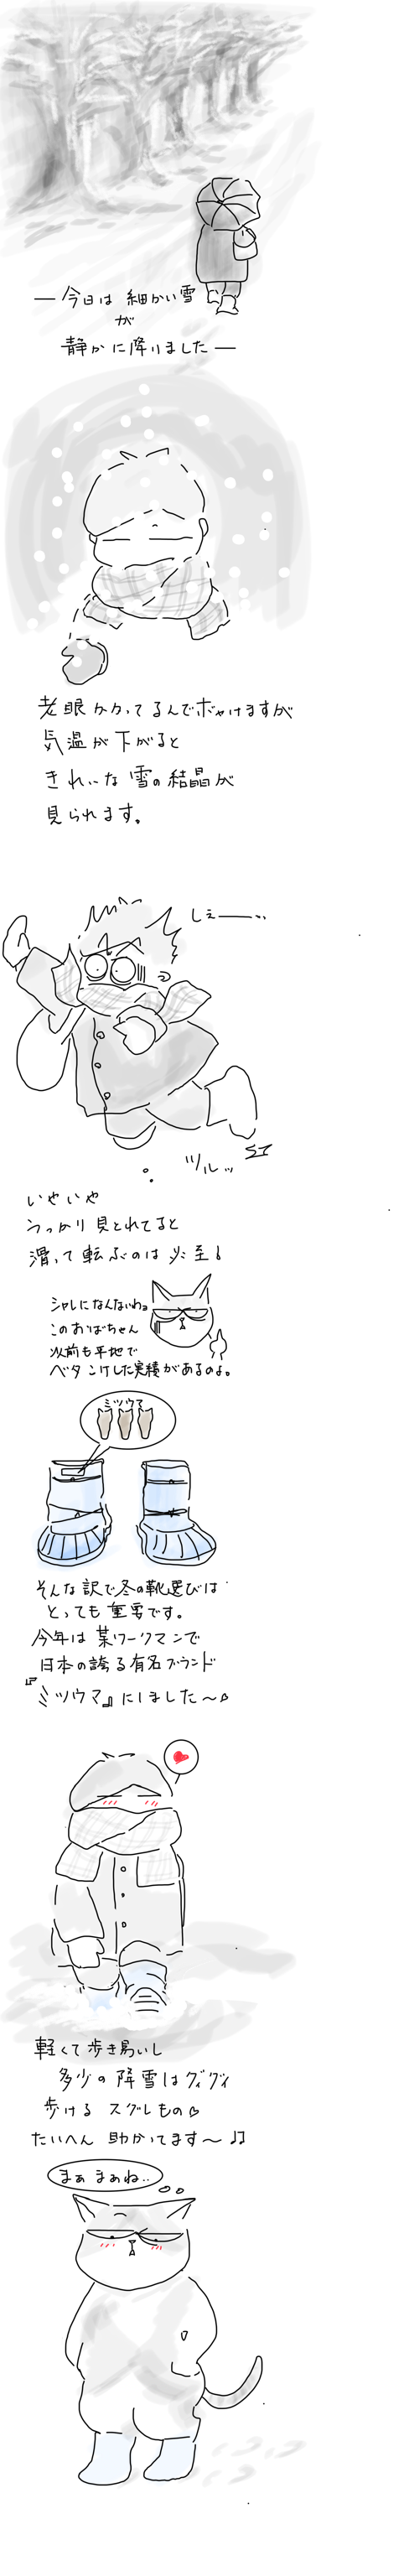 ― 今日は 細かい雪
が
静かに降りました ―
老眼入ってるんでボヤけますが
気温が下がると
きれいな 雪の結晶が
見られます。
しぇ―――…
ツルッ
いやいや
うっかり 見とれてると
滑って転ぶのは 必至!
シャレになんないわョ
このおばちゃん
以前も平地で
ベタこけした実績があるのよ。
ミツウマ
そんな訳で冬の靴選びは
とっても 重要です。
今年は 某ワークマンで
日本の誇る有名ブランド
『ミツウマ』にしました〜♪
軽くて歩き易いし
多少の 降雪はグイグイ
歩ける スグレもの♡
たいへん 助かってます〜 ♫
まぁ まぁね‥